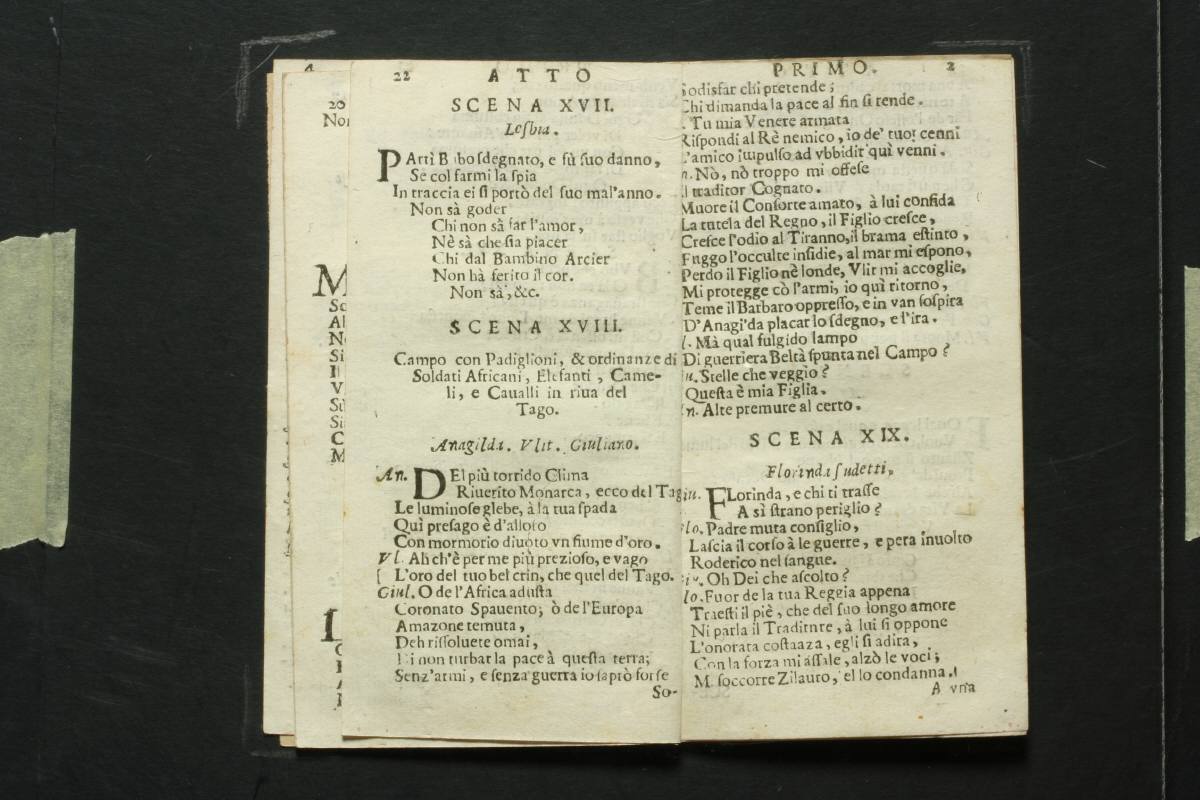 22 ATTO
SCENA XVII.
Lesbia.
PArtì Bibo sdegnato, e sù suo danno,
Se col farmi la spia
In traccia ei si portò del suo mal'anno.
Non sà goder
Chi non sà far l'amor,
Nè sà che sia piacer
Chi dal Bambino Arcier
Non hà ferito il cor.
Non sà, &c.
SCENA XVIII.
Campo con Padiglioni, & ordinanze di
Soldati Africani, Elefanti, Came-
li, e Caualli in riua del
Tago.
Anagilda. Vlit. Giuliano.
An. DEl più torrido Clima
Riuerito Monarca, ecco del Tag
Le luminose glebe, à la tua spada
Quì presago è d'alloro
Con mormorio diuoto vn fiume d'oro.
Vl. Ah ch'è per me più prezioso, e vago
L'oro del tuo bel crin, che quel del Tago.
Giul. O de l'Africa adusta
Coronato Spauento; ò de l'Europa
Amazone temuta,
Deh rissoluete omai,
Di non turbar la pace à questa terra;
Senz'armi, e senza guerra io saprò forse
So-
PRIMO. 2
sodisfar chi pretende;
Chi dimanda la pace al fin si rende.
. Tu mia Venere armata
Rispondi al Rè nemico, io de' tuoi cenni
L'amico impulso ad vbbidir quì venni.
n. Nò, nò troppo mi offese
Il traditor Cognato.
Muore il Consorte amato, à lui confida
La tutela del Regno, il Figlio cresce,
Cresce l'odio al Tiranno, il brama estinto,
Fuggo l'occulte insidie, al mar mi espono,
Perdo il Figlio nè londe, Vlit mi accoglie,
Mi protegge cò l'armi, io quì ritorno,
Teme il Barbaro oppresso, e in van sospira
D'Anagi'da placar lo sdegno, e l'ira.
l. Mà qual fulgido lampo
Di guerriera Beltà spunta nel Campo?
iu. Stelle che veggio?
Questa è mia Figlia.
n. Alte premure al certo.
SCENA XIX.
Florinda sudetti.
iu. FLorinda, e chi ti trasse
A sì strano periglio?
lo. Padre muta consiglio,
Lascia il corso à le guerre, e pera inuolto
Roderico nel sangue.
iu. Oh Dei che ascolto?
lo. Fuor de la tua Reggia appena
Traesti il piè, che del suo longo amore
Mi parla il Traditore, à lui si oppone
L'onorata costanza, egli si adira,
Con la forza mi assale, alzò le voci;
M. soccorre Zilauro, el lo condanna.
A vna
20
Non
M
So
Al
N
Si
Il
V
Si
Si
C
M